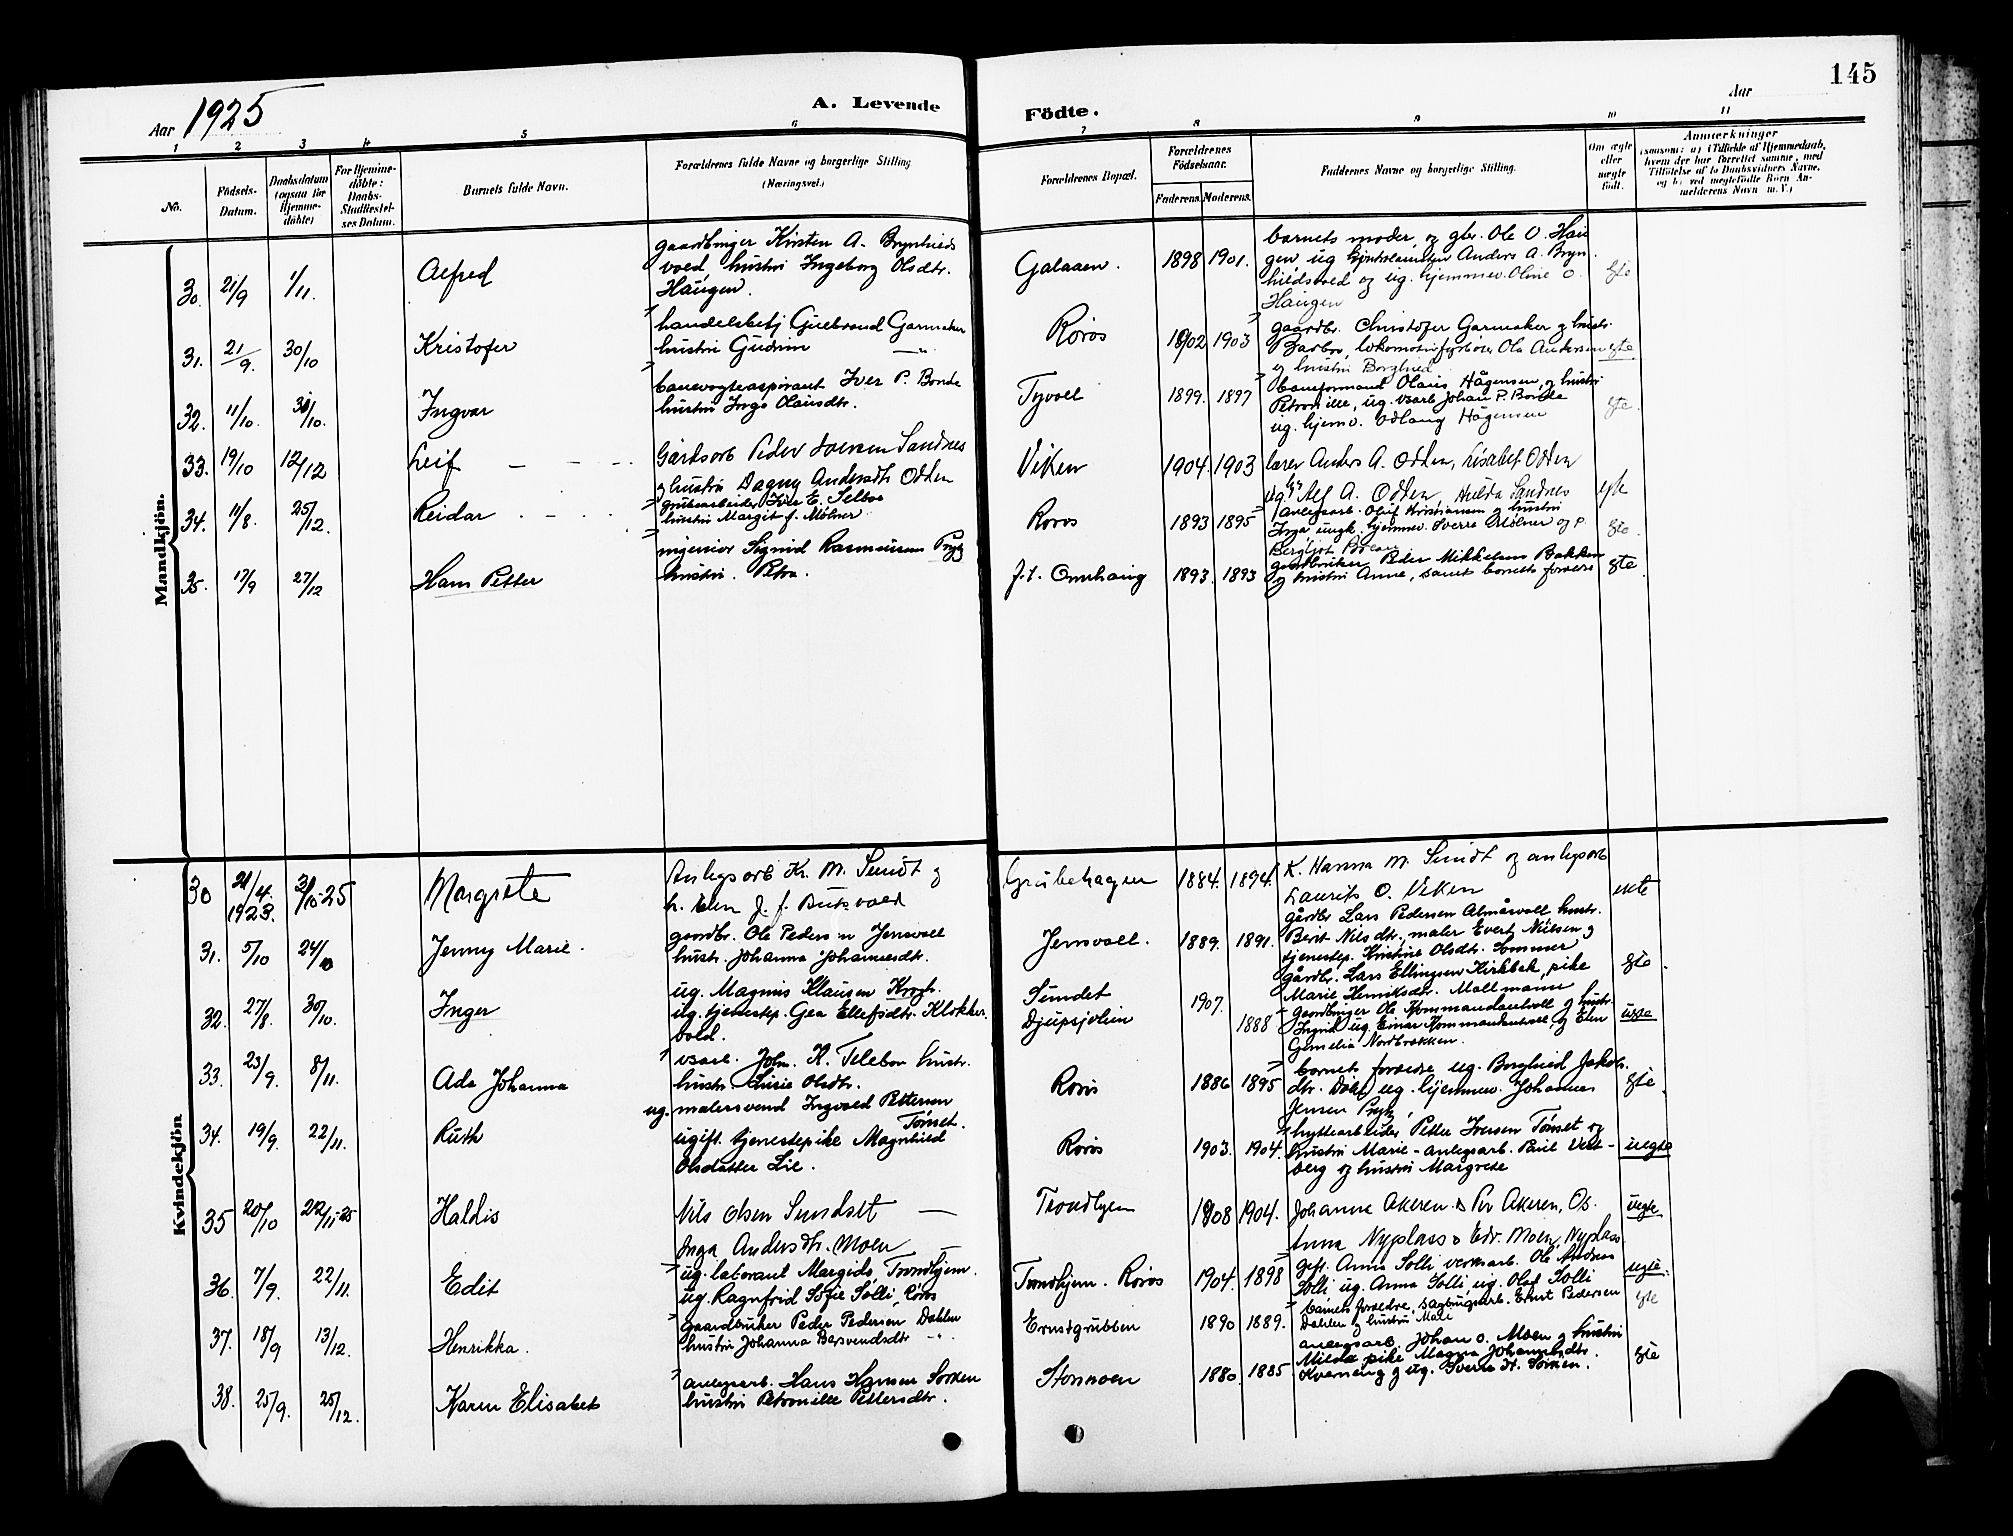 145
Aar 1925
A. Levende Födte.
Aar
1 2 3 4 5 6 7 8 9 10 11
No.
Födsels-
Datum.
Daabsdatum
(ogsaa for
Hjemme-
döbte)
For Hjemme-
döbte:
Daabs-
Stadfæstel-
ses Datum.
Barnets fulde Navn.
Forældrenes fulde Navne og borgerlige Stilling
(Næringsvei.)
Forældrenes Bopæl.
Forældrenes
Födselsaar.
Faderens. Moderens.
Faddernes Navne og borgerlige Stilling.
Om ægte
eller
uægte
födt.
Anmærkninger
(saasom: a) i Tilfælde af Hjemmedaab,
hvem der har forrettet samme, med
Tilföielse af to Daabsvidners Navne,
og b) ved uægtefödte Börn An-
melderens Navn m. V.)
Mandkjön.
30. 21/9 1/11. Alfred
gaardbruger Kirsten A.
vold, hustru Ingeborg Olsdtr.
Haugen.
Galaaen. 1898 1901.
barnets moder, og gbr. Ole O. Hau
gen ug Anders A. Bryn
hildsvold og ug. hjemmev. Oline O.
Haugen
gte
31. 21/9. 30/10 Kristofer
handelsbetj Gudbrand Garmaker
hustru Gudrun —"—
Røros 1902 1903
gaardbr. Christofer Garmaker og hustr.
Barbro, lokomotivfyrbøter Ole Andersen
og hustru Borghild
gte
32. 11/10. 30/10. Ingvar
banevogteraspirant Iver P. Borde
hustru Inga Olausdtr.
Tyvoll 1899. 1897
baneformand Olaus Hågensen, og hustru
Petronille, ug. vsarb. Johan P. Borde
ug. hjemv. Odlaug Hågensen
gte.
33. 19/10 12/12 Leif — — — -
Gardsarb Peder Sandnes
og hustru Dagny Andersdtr Odden
Viken 1904. 1903
lærer Anders A. Odden, Lisabet Odden
ug. Alf A. Odden, Hulda Sandnes
gte
34. 11/8. 25/12. Reidar - - -
grubearbeider Iver E. Selboe
hustru Margit f. Mølner
Røros 1893 1895
anlegsarb. Oluf Kristiansen og hustru
Inga, ungk. hjemmev. Sverre Mølner og p.
Bergljot
gte.
35. 17/9 27/12 Hans Petter
ingeniør Sigurd Rasmussen Prytz
hustru. Petra.
1893. 1893
gaardbruker Peder Mikkelsen Bakken
og hustru Anne, samt barnets forældre
gte.
Kvindekjön
30 21/4 1923. 31/10-25 Margrete
Anlegsarb Kr. M. Sundt og
h. Elen J. f. Butsvold
Grubehagen 1884. 1894.
K. Hanna M. Sundt og anlegsarb
Laurits O. Viken
ekte
31. 5/10 24/10 Jenny Marie.
gaardbr. Ole Pedersen Jensvoll
hustr. Johanna Johannesdtr.
Jensvoll. 1889. 1891.
gårdbr Lars Pedersen Almåsvoll hustr.
Berit Nilsdtr., maler Evert Nilsen og
tjenestep. Kristine Olsdtr. Sommer
gte.
32. 27/8. 30/10. Inger
ug. Magnus Klausen Krogh.
ug. tjenestep. Gea Ellefsdtr. Klokker.
vold.
Sundet
Djupsjølien
1907. 1888
gårdbr. Lars Ellingsen Kirkbak, pike
Marie Henriksdtr. Mallmann
gaardbruger Ole Kommandantvoll og hustr.
Ingrid ug. Einar Kommandantvoll, og Elen
Gemelia Nordbrækken.
uægte
33. 23/9. 8/11. Ada Johanna
vsarb. Joh. K. Telebon hustr.
hustr. Lusie Olsdtr.
Røros 1886 1895
barnets forældre ug. Borghild Jakob.
dtr. Dahl, ug. hjemmev. Johannes
Jensen Prytz
gte.
34. 19/9. 22/11. Ruth
ug. malersvend Ingvald Pettersen
Tønset.
ugift. tjenestepike Magnhild
Olsdatter Lie.
Røros 1903. 1904.
hyttearbeider Petter Iversen Tønset og
hustru Marie - anlegsarb. Paul Vest-
berg og hustru Margrete
uegte
35 20/10 22/11-25 Haldis
Nils Olsen Sundset —
Inga Andersdtr. Moen —
Trondhjem 1908 1904.
Johanna Akeren. & Per Akeren, Os.
Anna Nyplass & Edv. Moen, Nyplass
uegte
36. 7/9. 22/11. Edit
ug. laborant Margido, Trondhjem.
ug. Ragnfrid Sofie Solli, Røros
Trondhjem. Røros 1904. 1898
gift. Anna Solli verksarb. Ole Andreas
Solli ug. Anna Solli, ug. Olaf Solli
uegte.
37. 18/9 13/12. Henrikka.
gaardbruker Peder Pedersen Dahlen
hustru Johanna Bersvendsdtr —"—
Ernstgrubben 1890 1889.
barnets forældre, sagbrugsarb. Ernst Pedersen
Dahlen og hustru Mali
gte
38. 25/9. 25/12. Karen Elisabet
anlegsarb. Hans Hansen Sorken
hustru Petronille Pettersdtr.
Stormoen 1880. 1885
anlegsarb. Johan O. Moen og hustru
Milda pike Magna Johannesdtr.
Kvarneng og ug. Sverre H. Sorken.
gte